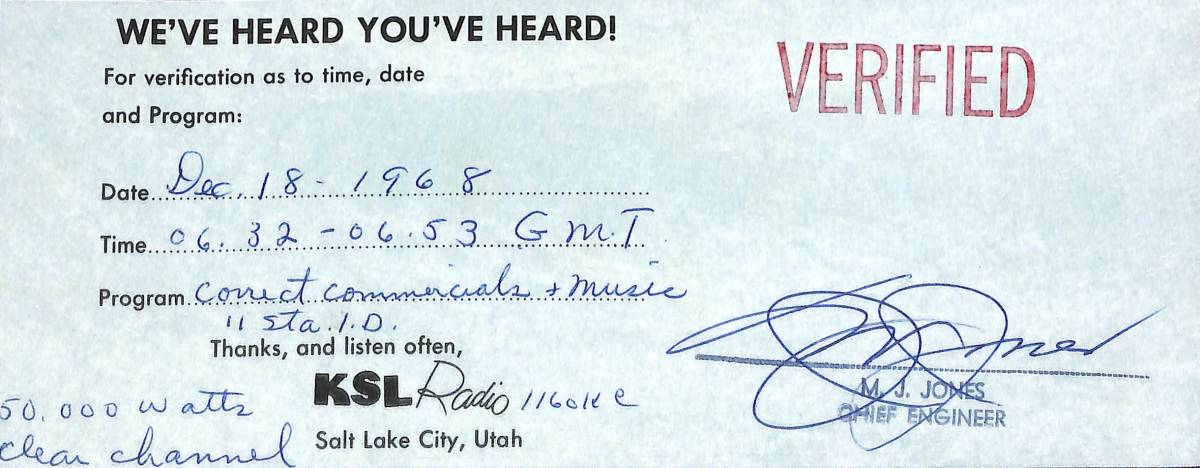 WE'VE HEARD YOU'VE HEARD!
VERIFIED
For verification as to time, date
and Program:
Date Dec. 18 - 1968
Time 06.32 - 06.53 G.M.T.
Program correct commercials + music
" Sta. I.D.
Thanks, and listen often,
KSL Radio 1160 Kc
Salt Lake City, Utah
50.000 watts
clear channel
M. J. Jones
M. J. JONES
CHIEF ENGINEER